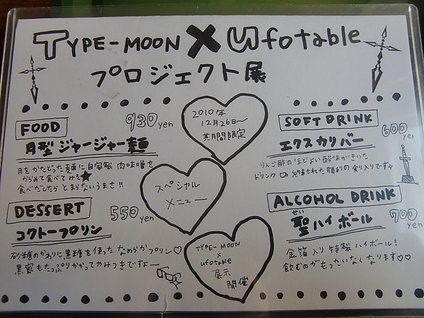 TYPE-MOON × ufotable
プロジェクト展
FOOD 930yen
月型ジャージャー麺
月をかたどった麺に自家製肉味噌を
からめて食べてみて★
食べだしたらとまらないうまさ!!
DESSERT 550yen
コクトープリン
砂糖のかわりに黒糖を使ったなめらかプリン♡
黒蜜もたっぷりかかってやみつきですよー
2010年
12月26日〜
期間限定
スペシャル
メニュー
TYPE-MOON
×
ufotable
展示
開催
SOFT DRINK 600yen
エクスカリバー
りんご酢のほどよい酸味がきいた
ドリンク
ALCOHOL DRINK 700yen
聖ハイボール
せい
金箔入り特製ハイボール!
飲むのがもったいなくなります♡♡